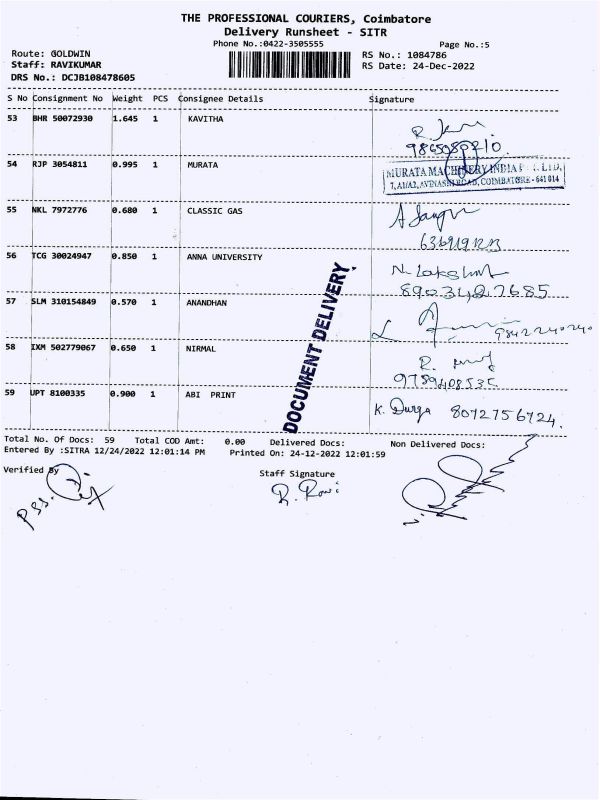 THE PROFESSIONAL COURIERS, Coimbatore
Delivery Runsheet - SITR
Phone No.:0422-3505555
Page No.:5
Route: GOLDWIN
RS No.: 1084786
Staff: RAVIKUMAR
RS Date: 24-Dec-2022
DRS No.: DCJB108478605
S No Consignment No Weight PCS Consignee Details Signature
53 BHR 50072930 1.645 1 KAVITHA
54 RJP 3054811 0.995 1 MURATA
MURATA MACHINERY INDIA LTD.
COIMBATORE - 641 014
55 NKL 7972776 0.680 1 CLASSIC GAS
56 TCG 30024947 0.850 1 ANNA UNIVERSITY
N. Lakshmi
8903427685
57 SLM 310154849 0.570 1 ANANDHAN
9842240240
58 IXM 502779067 0.650 1 NIRMAL
R.
9789408535
59 UPT 8100335 0.900 1 ABI PRINT
K. Durga 8072756724.
DOCUMENT DELIVERY.
Total No. Of Docs: 59 Total COD Amt: 0.00 Delivered Docs: Non Delivered Docs:
Entered By :SITRA 12/24/2022 12:01:14 PM Printed On: 24-12-2022 12:01:59
Verified By
Staff Signature
R. Ravi